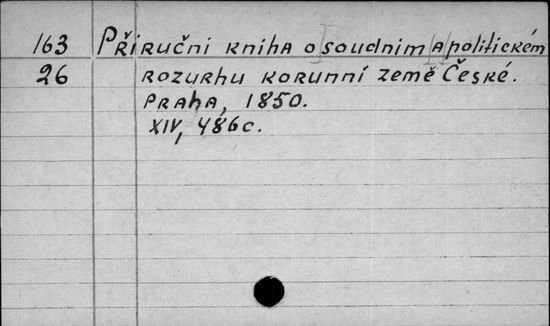 163 Příruční kniha o soudnim a politickém
26 rozurhu korunní země České.
Praha, 1850.
XIV, 486 c.